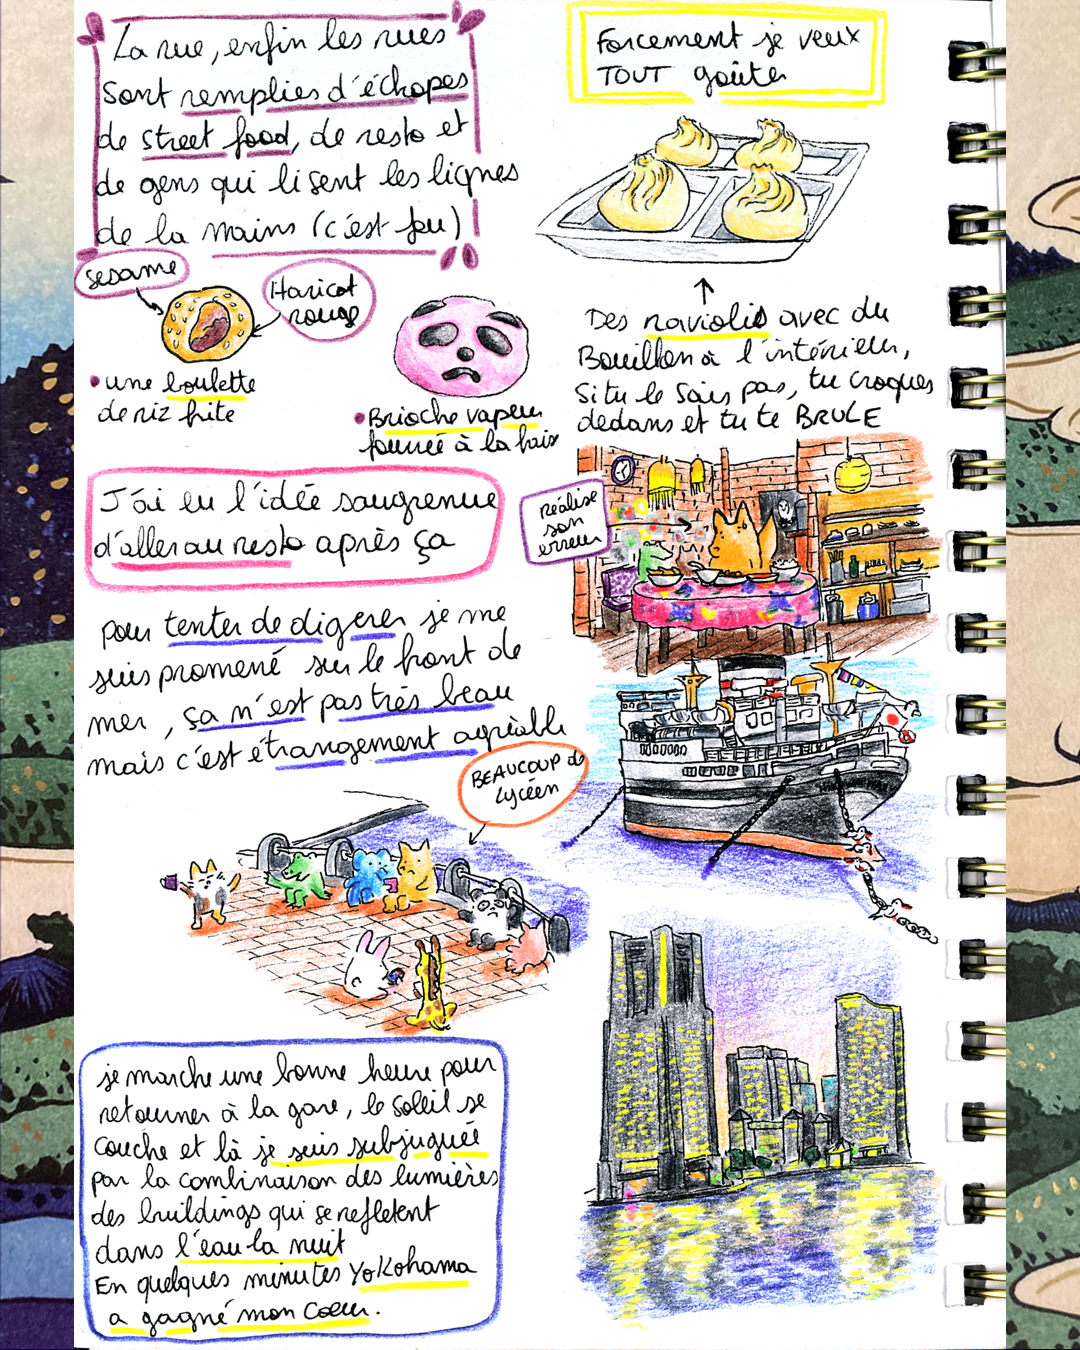 La rue, enfin les rues
sont remplies d'échopes
de street food, de resto et
de gens qui lisent les lignes
de la mains (c'est fou)
Forcement je veux
TOUT goûter
sesame
Haricot
rouge
• une boulette
de riz frite
• Brioche vapeur
fourrée à la haix
Des raviolis avec du
Bouillon à l'intérieur,
Si tu le sais pas, tu croques
dedans et tu te BRULE
J'ai eu l'idée saugrenue
d'aller au resto après ça
réalise
son
erreur
pour tenter de digerer je me
suis promené sur le front de
mer, ça n'est pas très beau
mais c'est étrangement agréable
BEAUCOUP de
Lycéen
je marche une bonne heure pour
retourner à la gare, le soleil se
couche et là je suis subjuguée
par la combinaison des lumières
des buildings qui se refletent
dans l'eau la nuit
En quelques minutes Yokohama
a gagné mon coeur.